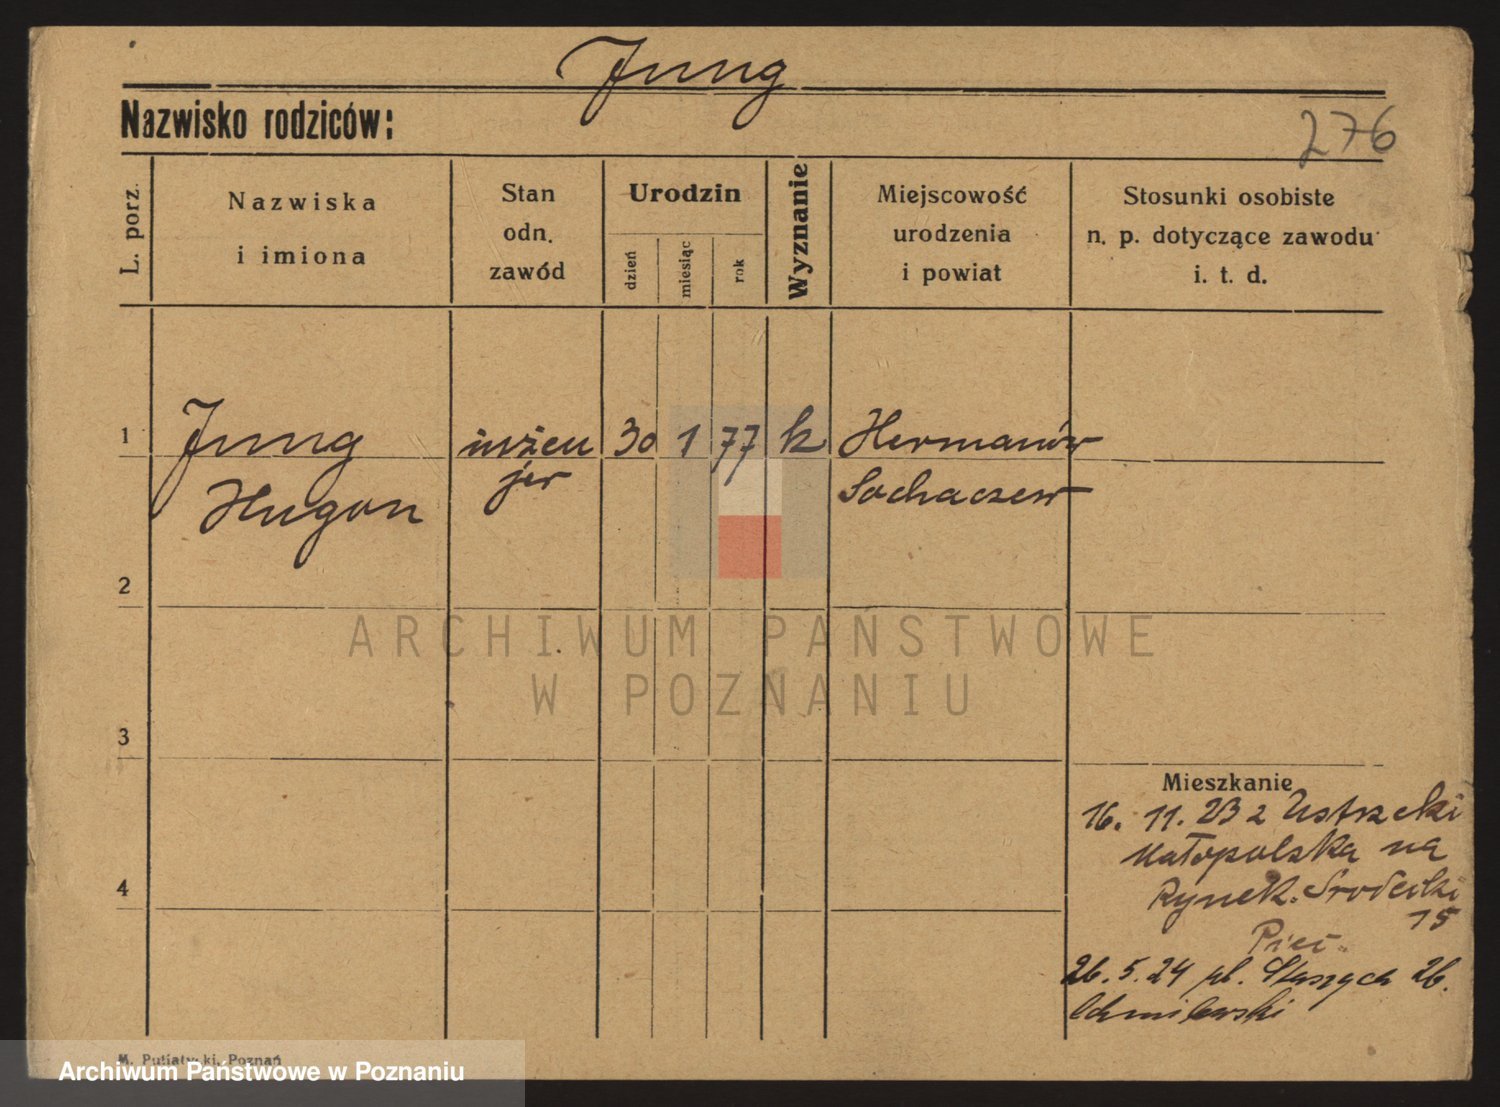 Jung
Nazwisko rodziców:
276
L. porz.
Nazwiska
i imiona
Stan
odn.
zawód
Urodzin
dzień
miesiąc
rok
Wyznanie
Miejscowość
urodzenia
i powiat
Stosunki osobiste
n. p. dotyczące zawodu
i. t. d.
1
Jung
Hugon
inżen
jer
30
1
77
k
Hermanów
Sochaczew
2
ARCHIWUM PAŃSTWOWE
W POZNANIU
3
Mieszkanie
16. 11. 23 z Ustrzeki
Małopolska na
Rynek. Śródecki
15
4
26. 5. 24 pl. 26.
Chmilewski
M. Putiatycki, Poznań
Archiwum Państwowe w Poznaniu